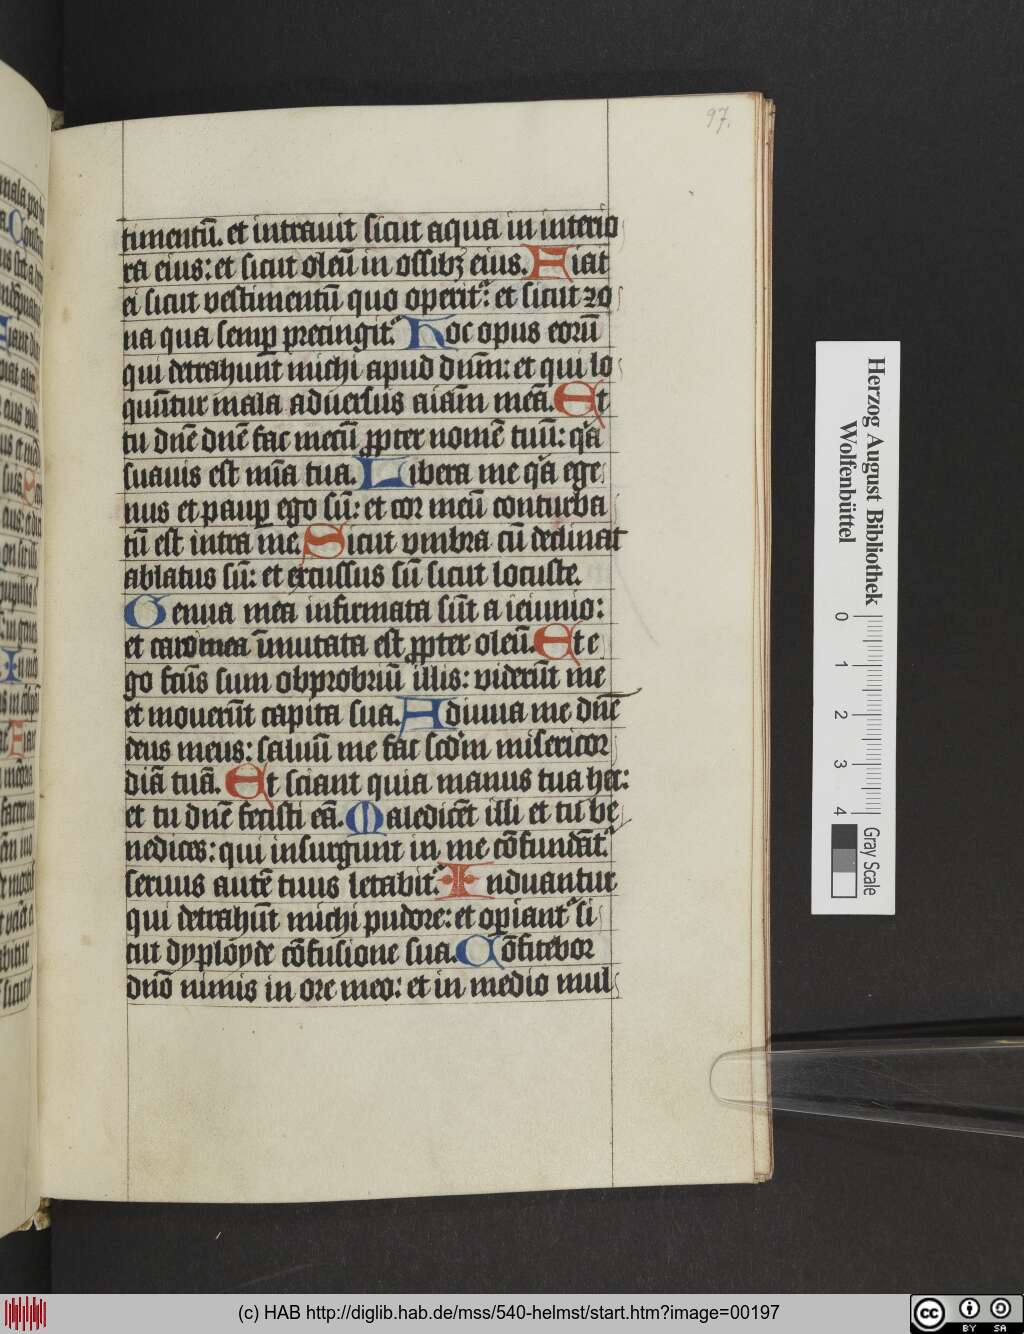 97.
timentū. et intrauit sicut aqua in interio
ra eius: et sicut oleū in ossibꝫ eius. Fiat
ei sicut vestimentū quo operit᷑: et sicut zo
na qua semꝑ precingit᷑. Hoc opus eorū
qui detrahunt michi apud dnm̄: et qui lo
quūtur mala aduersus aīam meā. Et
tu dnē dnē fac mecū ꝓpter nomē tuū: qͥa
suauis est mīa tua. Libera me qͥa ege
nus et pauꝑ ego sū: et cor meū conturba
tū est intra me. Sicut vmbra cū declinat
ablatus sū: et excussus sū sicut locuste.
Genua mea infirmata sūt a ieiunio:
et caro mea īmutata est ꝓpter oleū. Et e
go fc̄us sum obprobriū illis: viderūt me
et mouerūt capita sua. Adiuua me dnē
deus meus: saluū me fac scdm̄ misericor
diā tuā. Et sciant quia manus tua hec:
et tu dnē fecisti eā. Maledicēt illi et tu be
nedices: qui insurgunt in me cōfundāt᷑.
seruus autē tuus letabit᷑. Induantur
qui detrahūt michi pudore: et oꝑiant᷑ si
cut dyployde cōfusione sua. Cōfitebor
dnō nimis in ore meo: et in medio mul
Herzog August Bibliothek
Wolfenbüttel
0 1 2 3 4
Gray Scale
(c) HAB http://diglib.hab.de/mss/540-helmst/start.htm?image=00197
cc BY SA